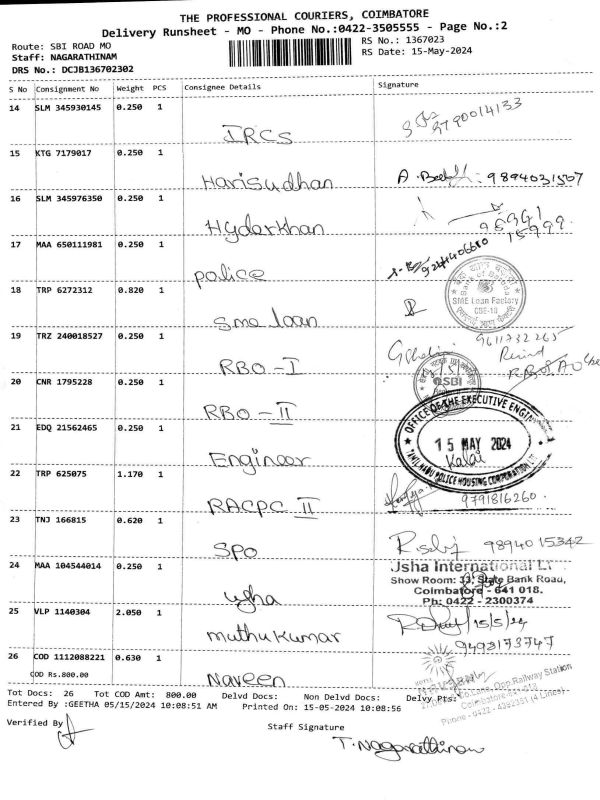 THE PROFESSIONAL COURIERS, COIMBATORE
Delivery Runsheet - MO - Phone No.:0422-3505555 - Page No.:2
Route: SBI ROAD MO
RS No.: 1367023
Staff: NAGARATHINAM
RS Date: 15-May-2024
DRS No.: DCJB136702302
S No Consignment No Weight PCS Consignee Details Signature
14 SLM 345930145 0.250 1
IRCS
9790014133
15 KTG 7179017 0.250 1
Harisudhan
9894031507
16 SLM 345976350 0.250 1
Hyderkhan
15999
17 MAA 650111981 0.250 1
police
18 TRP 6272312 0.820 1
Sme loan
Bank of Baroda
SME Loan Factory
CBE-18
19 TRZ 240018527 0.250 1
RBO-I
9611732265
20 CNR 1795228 0.250 1
RBO-II
SBI
21 EDQ 21562465 0.250 1
Engineer
OFFICE OF THE EXECUTIVE ENGINEER
15 MAY 2024
Kalai
TAMIL NADU POLICE HOUSING CORPORATION LTD
22 TRP 625075 1.170 1
RACPC II
9791816260
23 TNJ 166815 0.620 1
SPO
9894015342
24 MAA 104544014 0.250 1
usha
Usha International Lt
Show Room: 33, State Bank Road,
Coimbatore - 641 018.
Ph: 0422 - 2300374
25 VLP 1140304 2.050 1
muthukumar
15/5/24
9493173747
26 COD 1112088221 0.630 1
COD Rs.800.00
Naveen
Opp.Railway Station
Tot Docs: 26 Tot COD Amt: 800.00 Delvd Docs: Non Delvd Docs: Delvy Pts:
Entered By :GEETHA 05/15/2024 10:08:51 AM Printed On: 15-05-2024 10:08:56
Phone - 0422 - 4382351 (4 Lines)
Verified By
Staff Signature
T. Nagarathinam